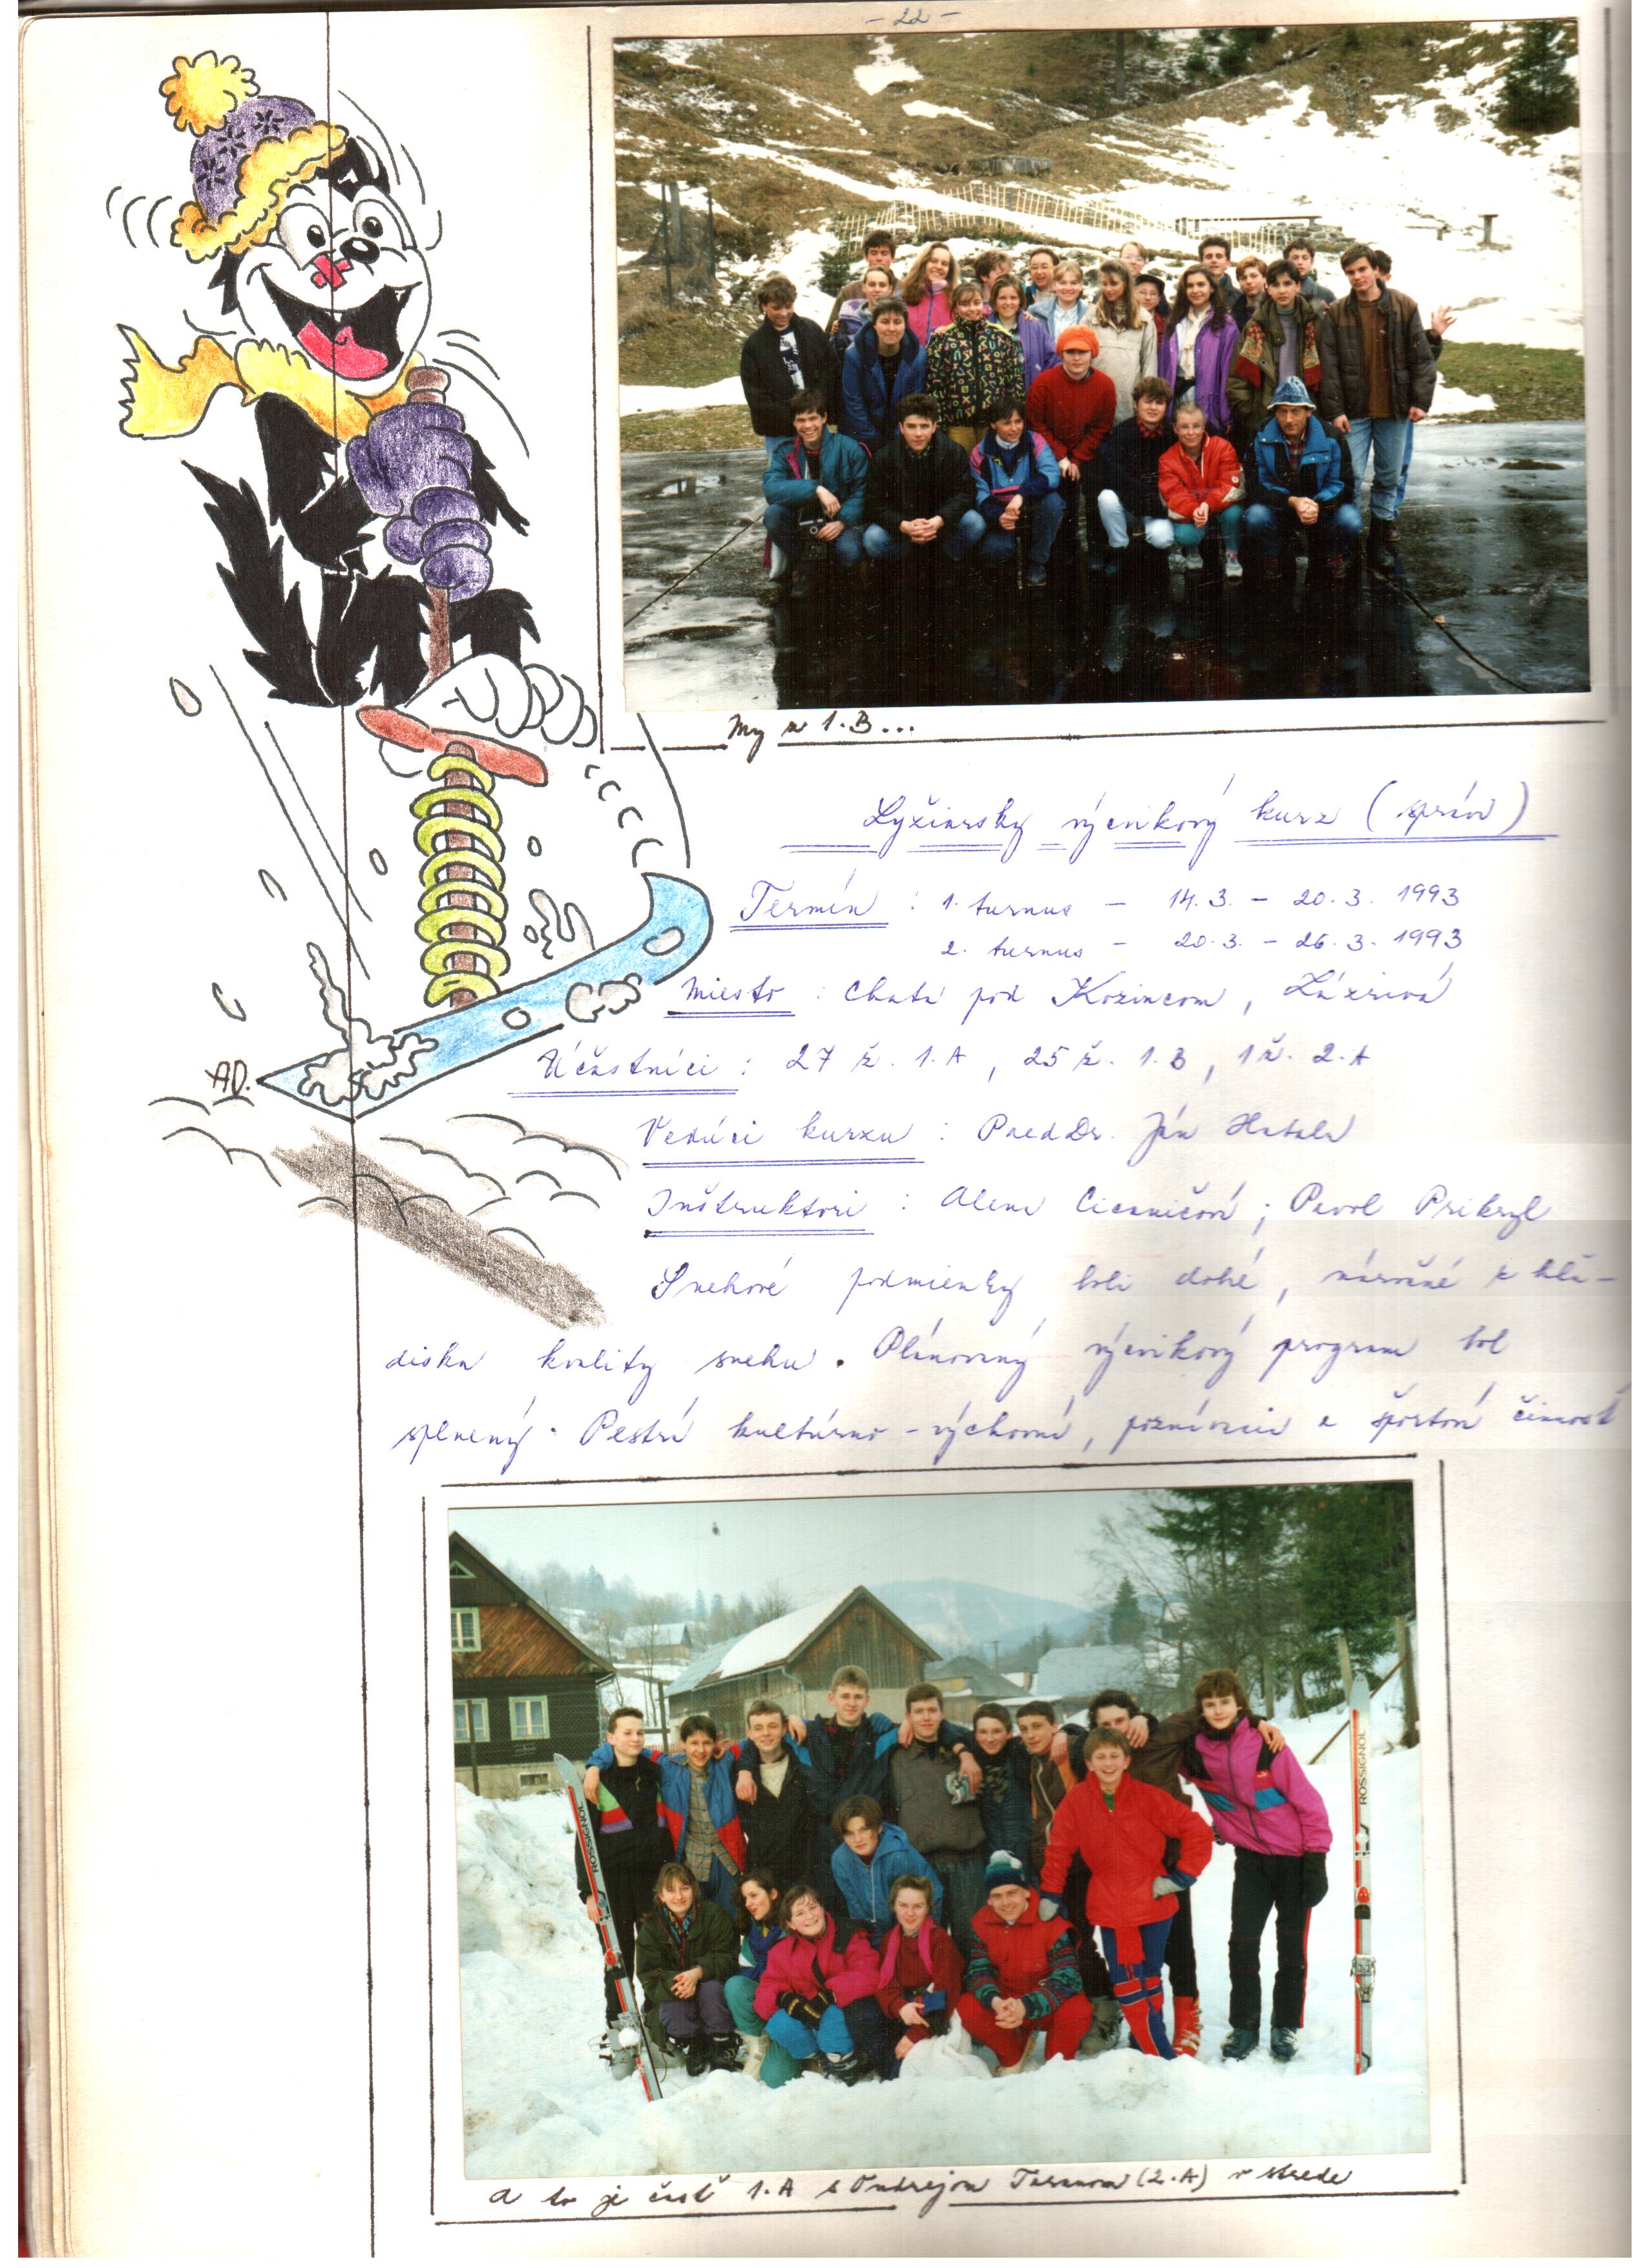 - 22 -
My z 1.B...
Lyžiarsky výcvikový kurz (správa)
Termín : 1. turnus - 14.3. - 20.3. 1993
2. turnus - 20.3. - 26.3. 1993
Miesto : Chata pod Kozincom, Zázrivá
Účastníci : 27 ž. 1.A, 25 ž. 1.B, 1 ž. 2.A
Vedúci kurzu : PaedDr. Ján Hatala
Inštruktori : Alena ; Pavol Prikryl
Snehové podmienky boli dobé, náročné z hľa-
diska kvality snehu. Plánovaný výcvikový program bol
splnený. Pestrá kultúrno-výchovná, poznávacia a športová činnosť
AD.
ROSSIGNOL
ROSSIGNOL
A to je časť 1.A s Ondrejom (2.A) v strede